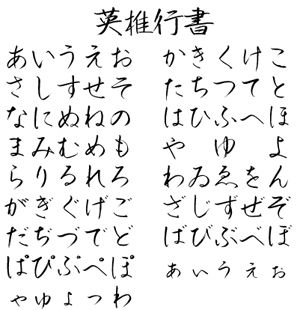 英椎行書
あいうえお かきくけこ
さしすせそ たちつてと
なにぬねの はひふへほ
まみむめも や ゆ よ
らりるれろ わゐゑをん
がぎぐげご ざじずぜぞ
だぢづでど ばびぶべぼ
ぱぴぷぺぽ ぁぃぅぇぉ
ゃゅょっゎ